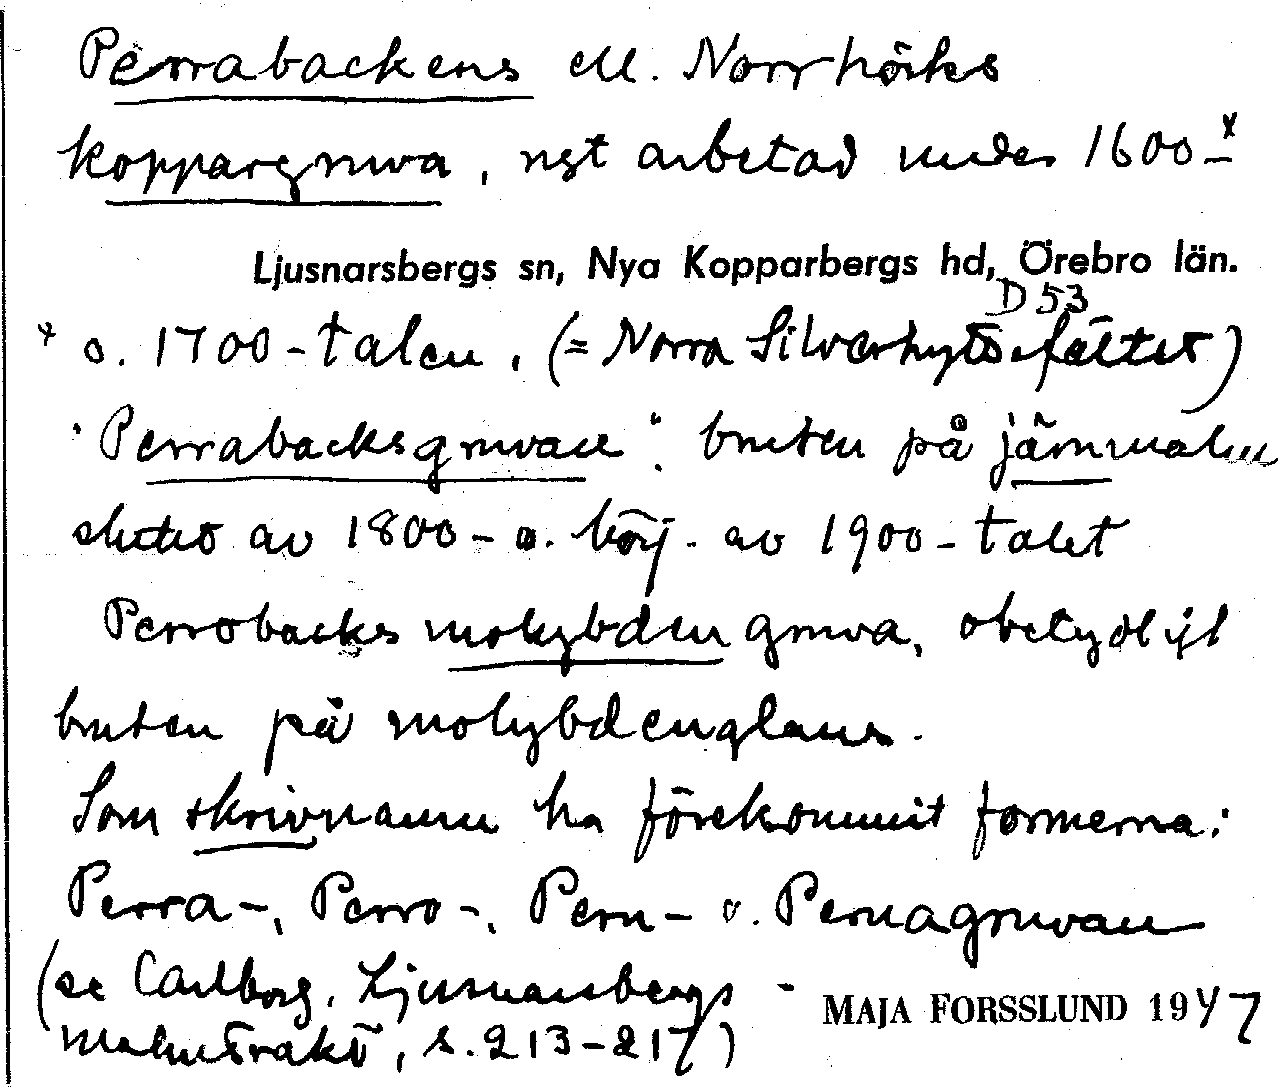 Perrabackens ell. Norrhörks
koppargruva, ngt arbetad under 1600-x
Ljusnarsbergs sn, Nya Kopparbergs hd, Örebro län.
D 53
x o. 1700-talen. (= Norra Silverhyttefältet)
"Perrabacksgruvan". bruten på järnmalm
slutet av 1800- o. börj. av 1900-talet
Perrobacks molybdengruva, obetydligt
bruten på molybdenglans.
Som skrivnamn ha förekommit formerna:
Perra-, Perro-, Pern- o. Pernagruvan
(se Carlborg, Ljusnarsbergs
malmtrakt, s. 213-217)
MAJA FORSSLUND 1947